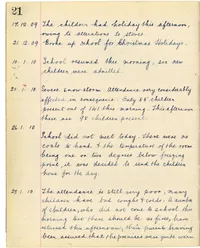 21
17.12.09 The children had holiday this afternoon,
owing to alterations to stoves.
21.12.09 Broke up school for Christmas Holidays.
10.1.10 School resumed this morning, six new
children were admitted.
21.1.10 Severe snow storm. Attendance very considerably
affected in consequence. Only 88 children
present out of 141 this morning. This afternoon
there are 90 children present.
26.1.10
School did not meet today. There were no
coals to hand & the temperature of the room
being one or two degrees below freezing
point it was decided to send the children
home for the day.
28.1.10 The attendance is still very poor, many
children have bad coughs & colds. A number
of children, who did not come to school this
morning lest there should be no fires, have
returned this afternoon, their parents having
been assured that the premises were quite warm.